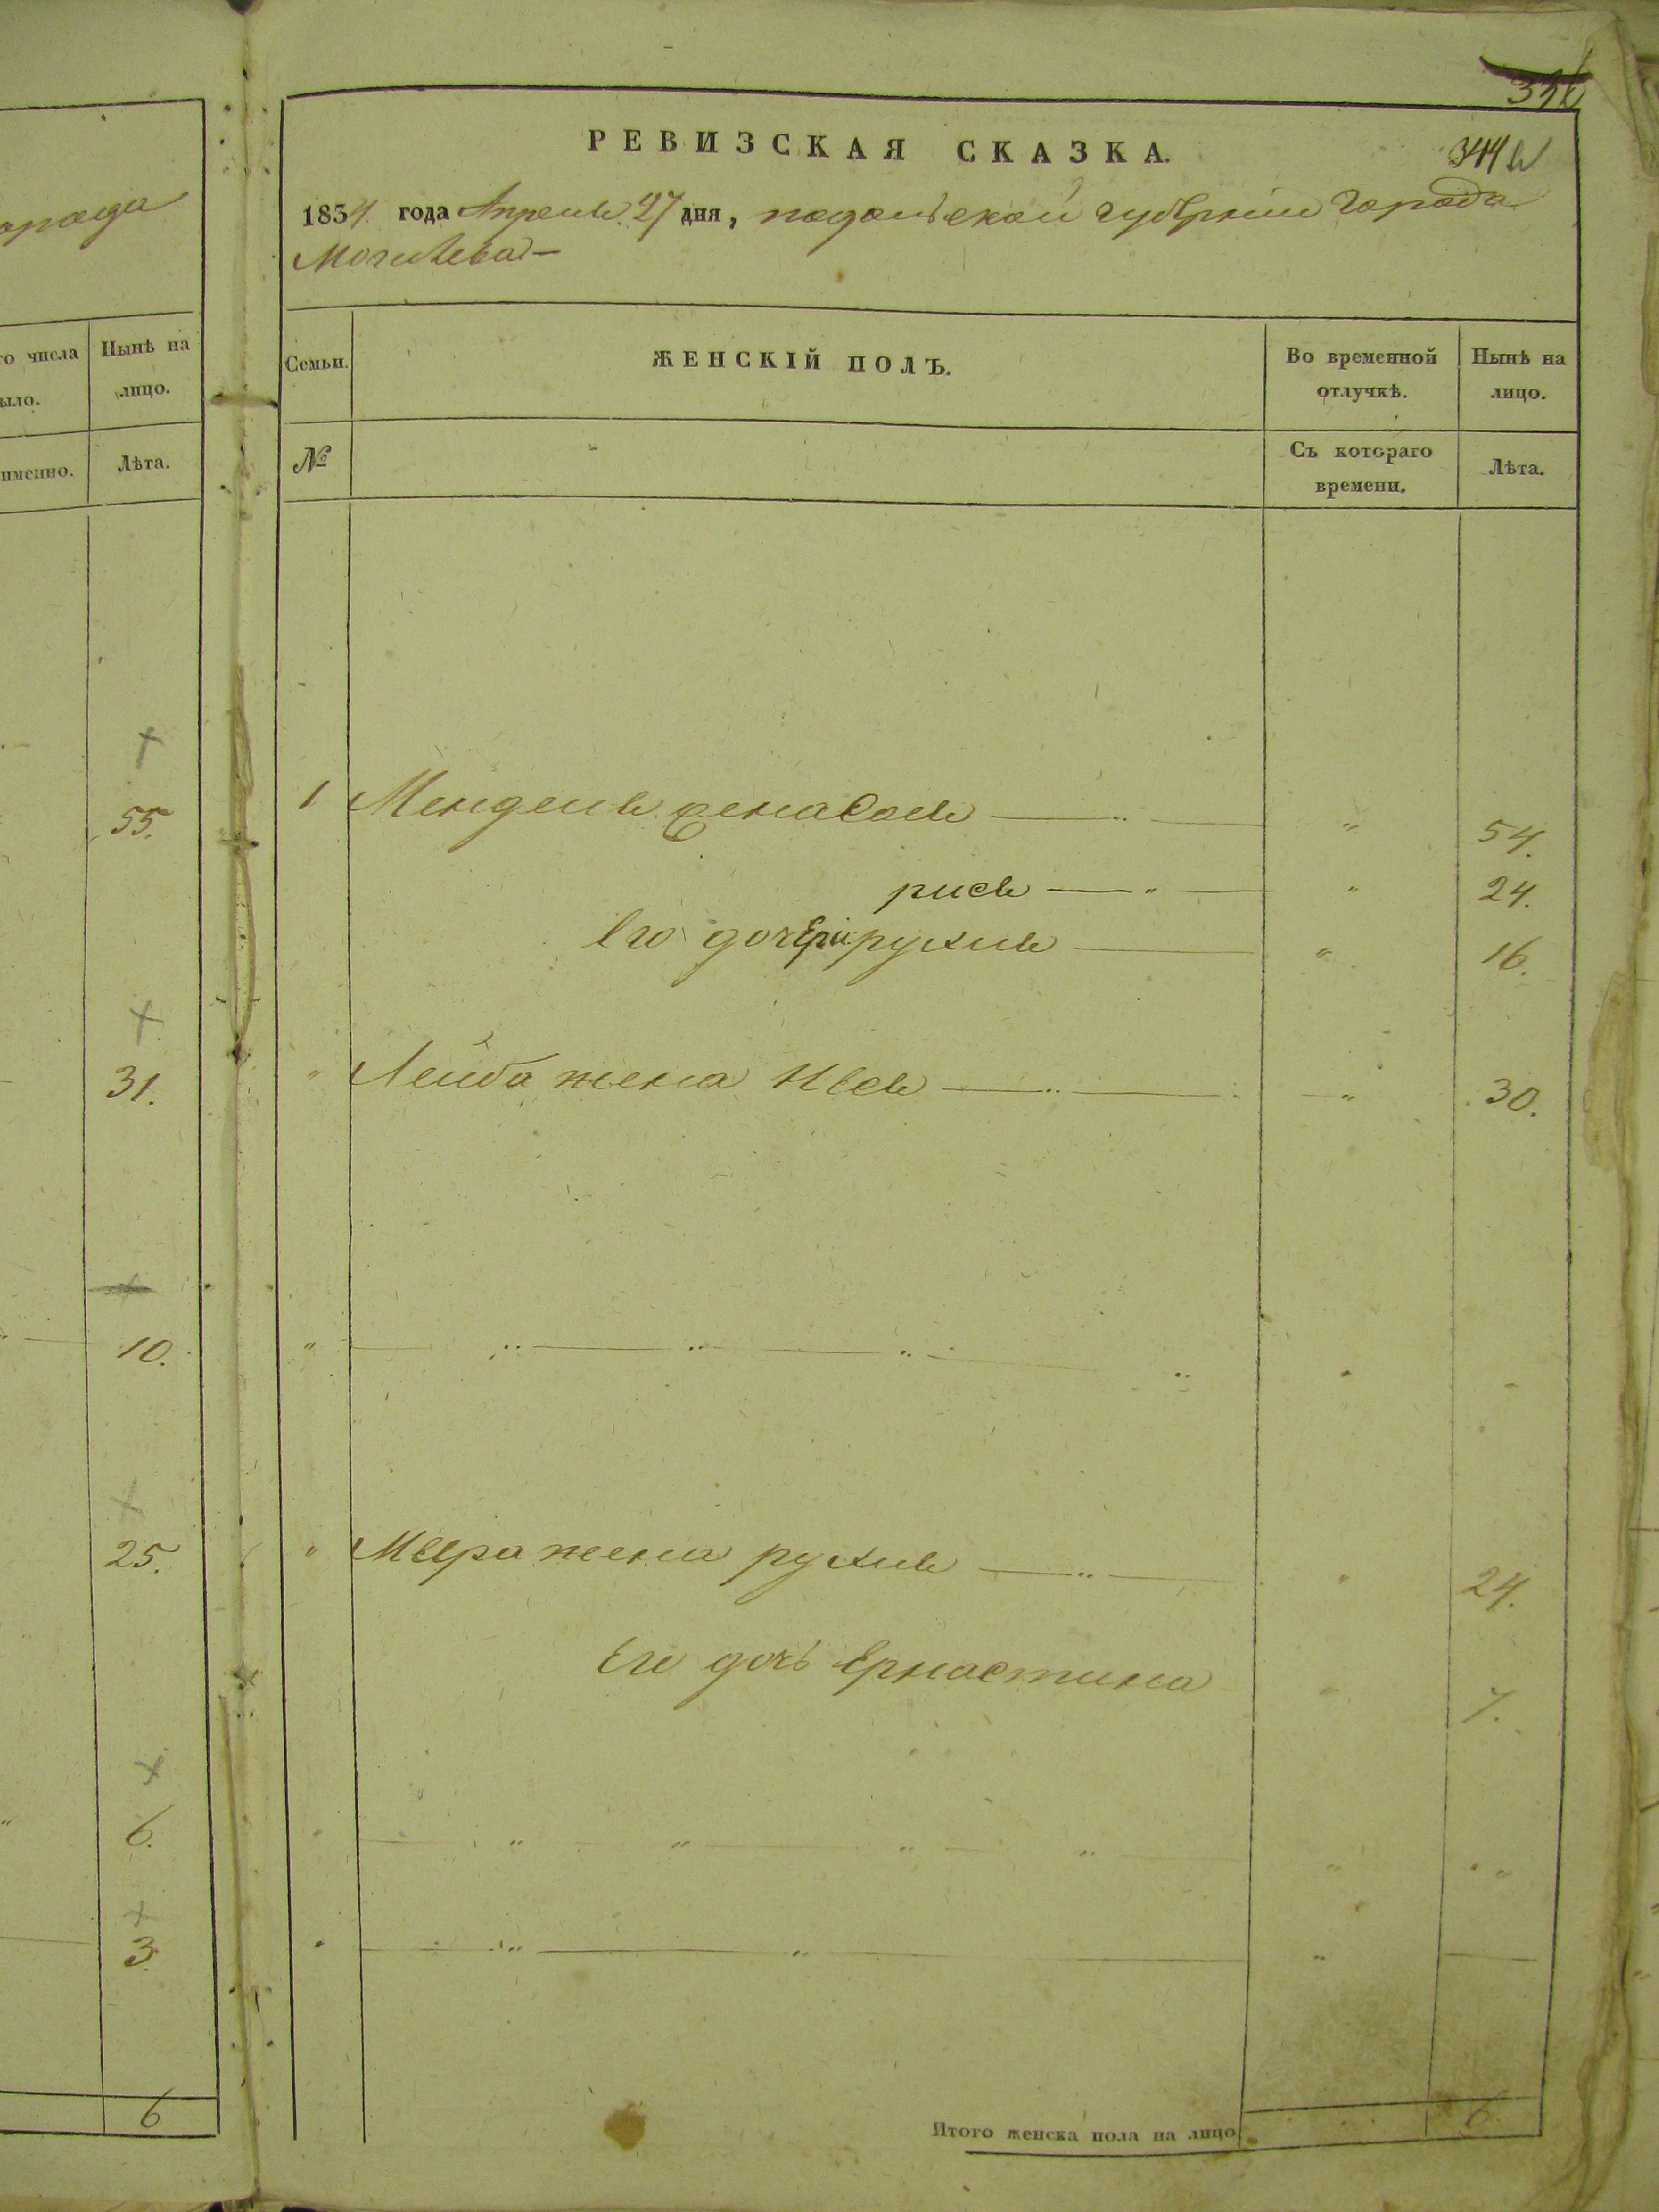 орада
го числа
было.
Нынѣ на
лицо.
именно.
Лѣта.
55.
31.
10.
25.
6.
3.
6
344
РЕВИЗСКАЯ СКАЗКА.
1834 года Апреля 27 дня, подольской губернии Города
Могилева
Семьи.
ЖЕНСКІЙ ПОЛЪ.
Во временной
отлучкѣ.
Нынѣ на
лицо.
№
Съ котораго
времени.
Лѣта.
1 Менделя жена Сося " 54.
рися " 24.
Его дочери рухля " 16.
" Лейба жена Ився " 30.
" Меера жена рухля " 24.
Его дочь Ернастина " 7.
Итого женска пола на лицо 6.